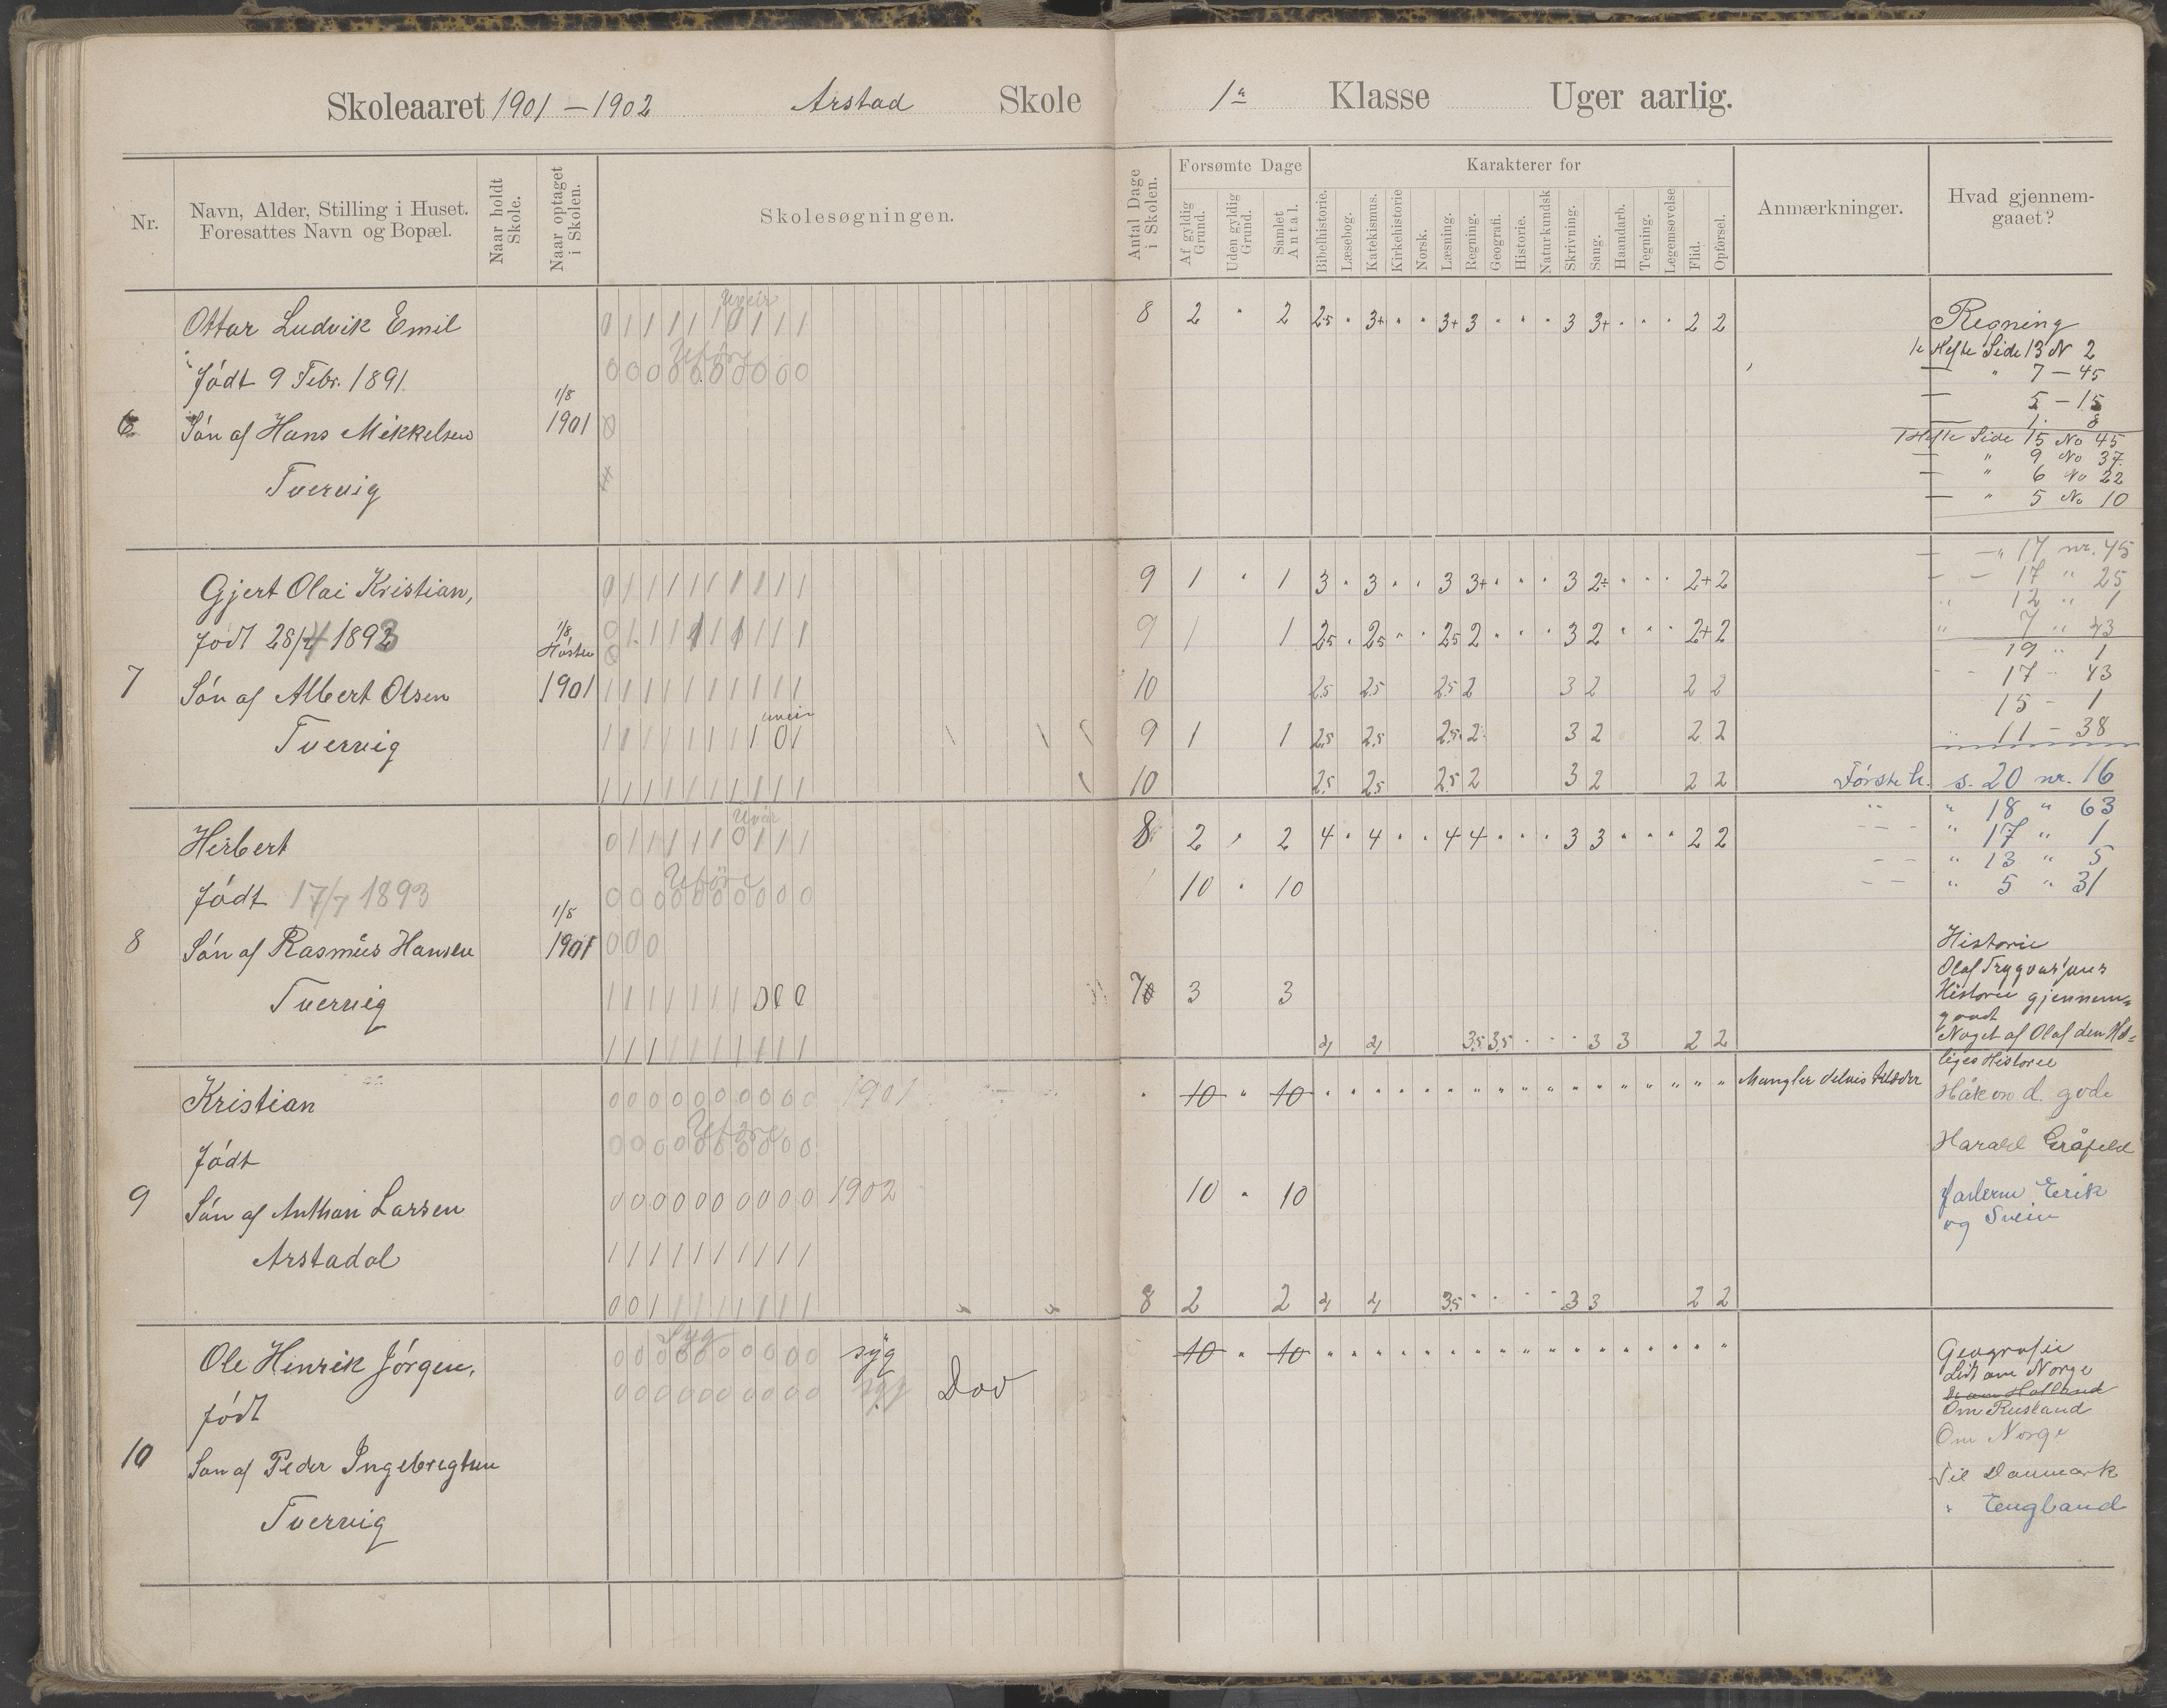 Skoleaaret 1901 – 1902 Arstad Skole 1ª Klasse Uger aarlig.
Nr.
Navn, Alder, Stilling i Huset.
Foresattes Navn og Bopæl.
Naar holdt Skole.
Naar optaget i Skolen.
Skolesøgningen.
Antal Dage i Skolen.
Forsømte Dage
Af gyldig Grund.
Uden gyldig Grund.
Samlet Antal.
Karakterer for
Bibelhistorie.
Læsebog.
Katekismus.
Kirkehistorie
Norsk.
Læsning.
Regning.
Geografi.
Historie.
Naturkundsk
Skrivning.
Sang.
Haandarb.
Tegning.
Legemsøvelse
Flid.
Opførsel.
Anmærkninger.
Hvad gjennem-
gaaet?
6
Ottar Ludvik Emil
Født 9 Febr. 1891.
Søn af Hans Mikkelsen
Tvervig
1/8
1901
Uveir
0 1 1 1 1 1 0 1 1 1
Uføre
0 0 0 0 0 0 0 0 0 0
8 2 " 2 2.5 " 3+ " " 3+ 3 " " " 3 3+ " " " 2 2
Regning
1e Hefte Side 13 N 2
— " 7 — 45
— 5 — 15
— 1. 8
1 Hefte Side 15 No 45
— " 9 No 37
— " 6 No 22
— " 5 No 10
7
Gjert Olai Kristian,
Født 28/4 1893
Søn af Albert Olsen
Tvervig
1/8
Høsten
1901
0 1 1 1 1 1 1 1 1 1
0 1 1 1 1 1 1 1 1 1
1 1 1 1 1 1 1 1 1 1
uveir
1 1 1 1 1 1 1 1 0 1
1 1 1 1 1 1 1 1 1 1
9 1 " 1 3 " 3 " " 3 3+ " " " 3 2÷ " " " 2+ 2
9 1 1 2.5 " 2.5 " " 2.5 2 " " " 3 2 " " " 2+ 2
10 2.5 2.5 2.5 2 3 2 2 2
9 1 1 2.5 2.5 2.5 2 3 2 2 2
10 2.5 2.5 2.5 2 3 2 2 2
— —" 17 nr. 45
— — 17 " 25
" 12 " 1
" 7 " 43
19 " 1
- - 17 - 43
15 - 1
" 11 - 38
Første h. s. 20 nr. 16
" " 18 " 63
- - - " 17 " 1
- - " 13 " 5
- - " 5 " 31
8
Herbert
Født 17/7 1893
Søn af Rasmus Hansen
Tvervig
1/8
1901
Uvær
0 1 1 1 1 1 0 1 1 1
Uføre
0 0 0 0 0 0 0 0 0 0
0 0 0
1 1 1 1 1 1 1 0 0 0
1 1 1 1 1 1 1 1 1 1
8 2 " 2 4 " 4 " " 4 4 " " " 3 3 " " " 2 2
10 " 10
7 3 3
4 4 3.5 3.5 " " " 3 3 2 2
Historie
Olaf Trygvasjøns
Historie gjennem=
gaat
Noget af Olaf den Hel=
liges Historie
9
Kristian
Født
Søn af Anthon Larsen
Arstadal
0 0 0 0 0 0 0 0 0 0 1901
Uføre
0 0 0 0 0 0 0 0 0 0
0 0 0 0 0 0 0 0 0 0 1902
1 1 1 1 1 1 1 1 1 1
0 0 1 1 1 1 1 1 1 1
" 10 " 10 " " " " " " " " " " " " " " " " "
Mangler delvis klæder
10 " 10
8 2 2 4 4 3.5 " " " " 3 3 2 2
Håkon d. gode
Harald Gråfeld
Jarlerne Erik
og Svein
10
Ole Henrik Jørgen,
født
Søn af Peder Ingebrigtsen
Tvervig
Syg
0 0 0 0 0 0 0 0 0 0 syg
0 0 0 0 0 0 0 0 0 0 syg Døv
10 " 10 " " " " " " " " " " " " " " " " "
Geografie
Lidt om Norge
Om Rusland
Om Norge
Til Danmark
" England